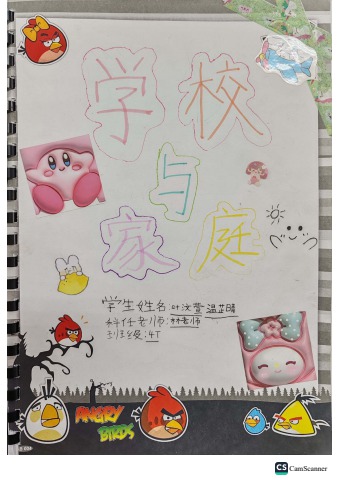 学校
与
家庭
学生姓名:叶汶萱 温芷晴
科任老师:林老师
班级:4T
ANGRY
BIRDS
CS CamScanner